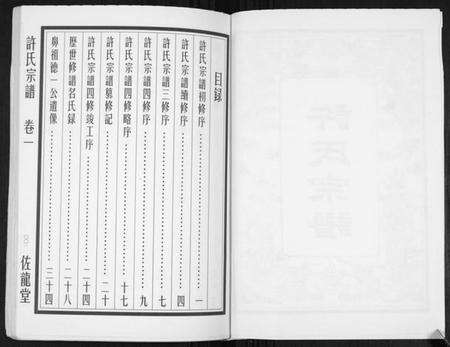 目录
許氏宗譜初修序 一
許氏宗譜續修序 四
許氏宗譜三修序 七
許氏宗譜四修序 九
許氏宗譜四修略序 十七
許氏宗譜墓修記 二十
許氏宗譜四修竣工序 二十四
歷世修譜名氏録 二十八
鼻祖德一公遺像 三十四
許氏宗譜 卷一
佐龍堂
許氏宗譜